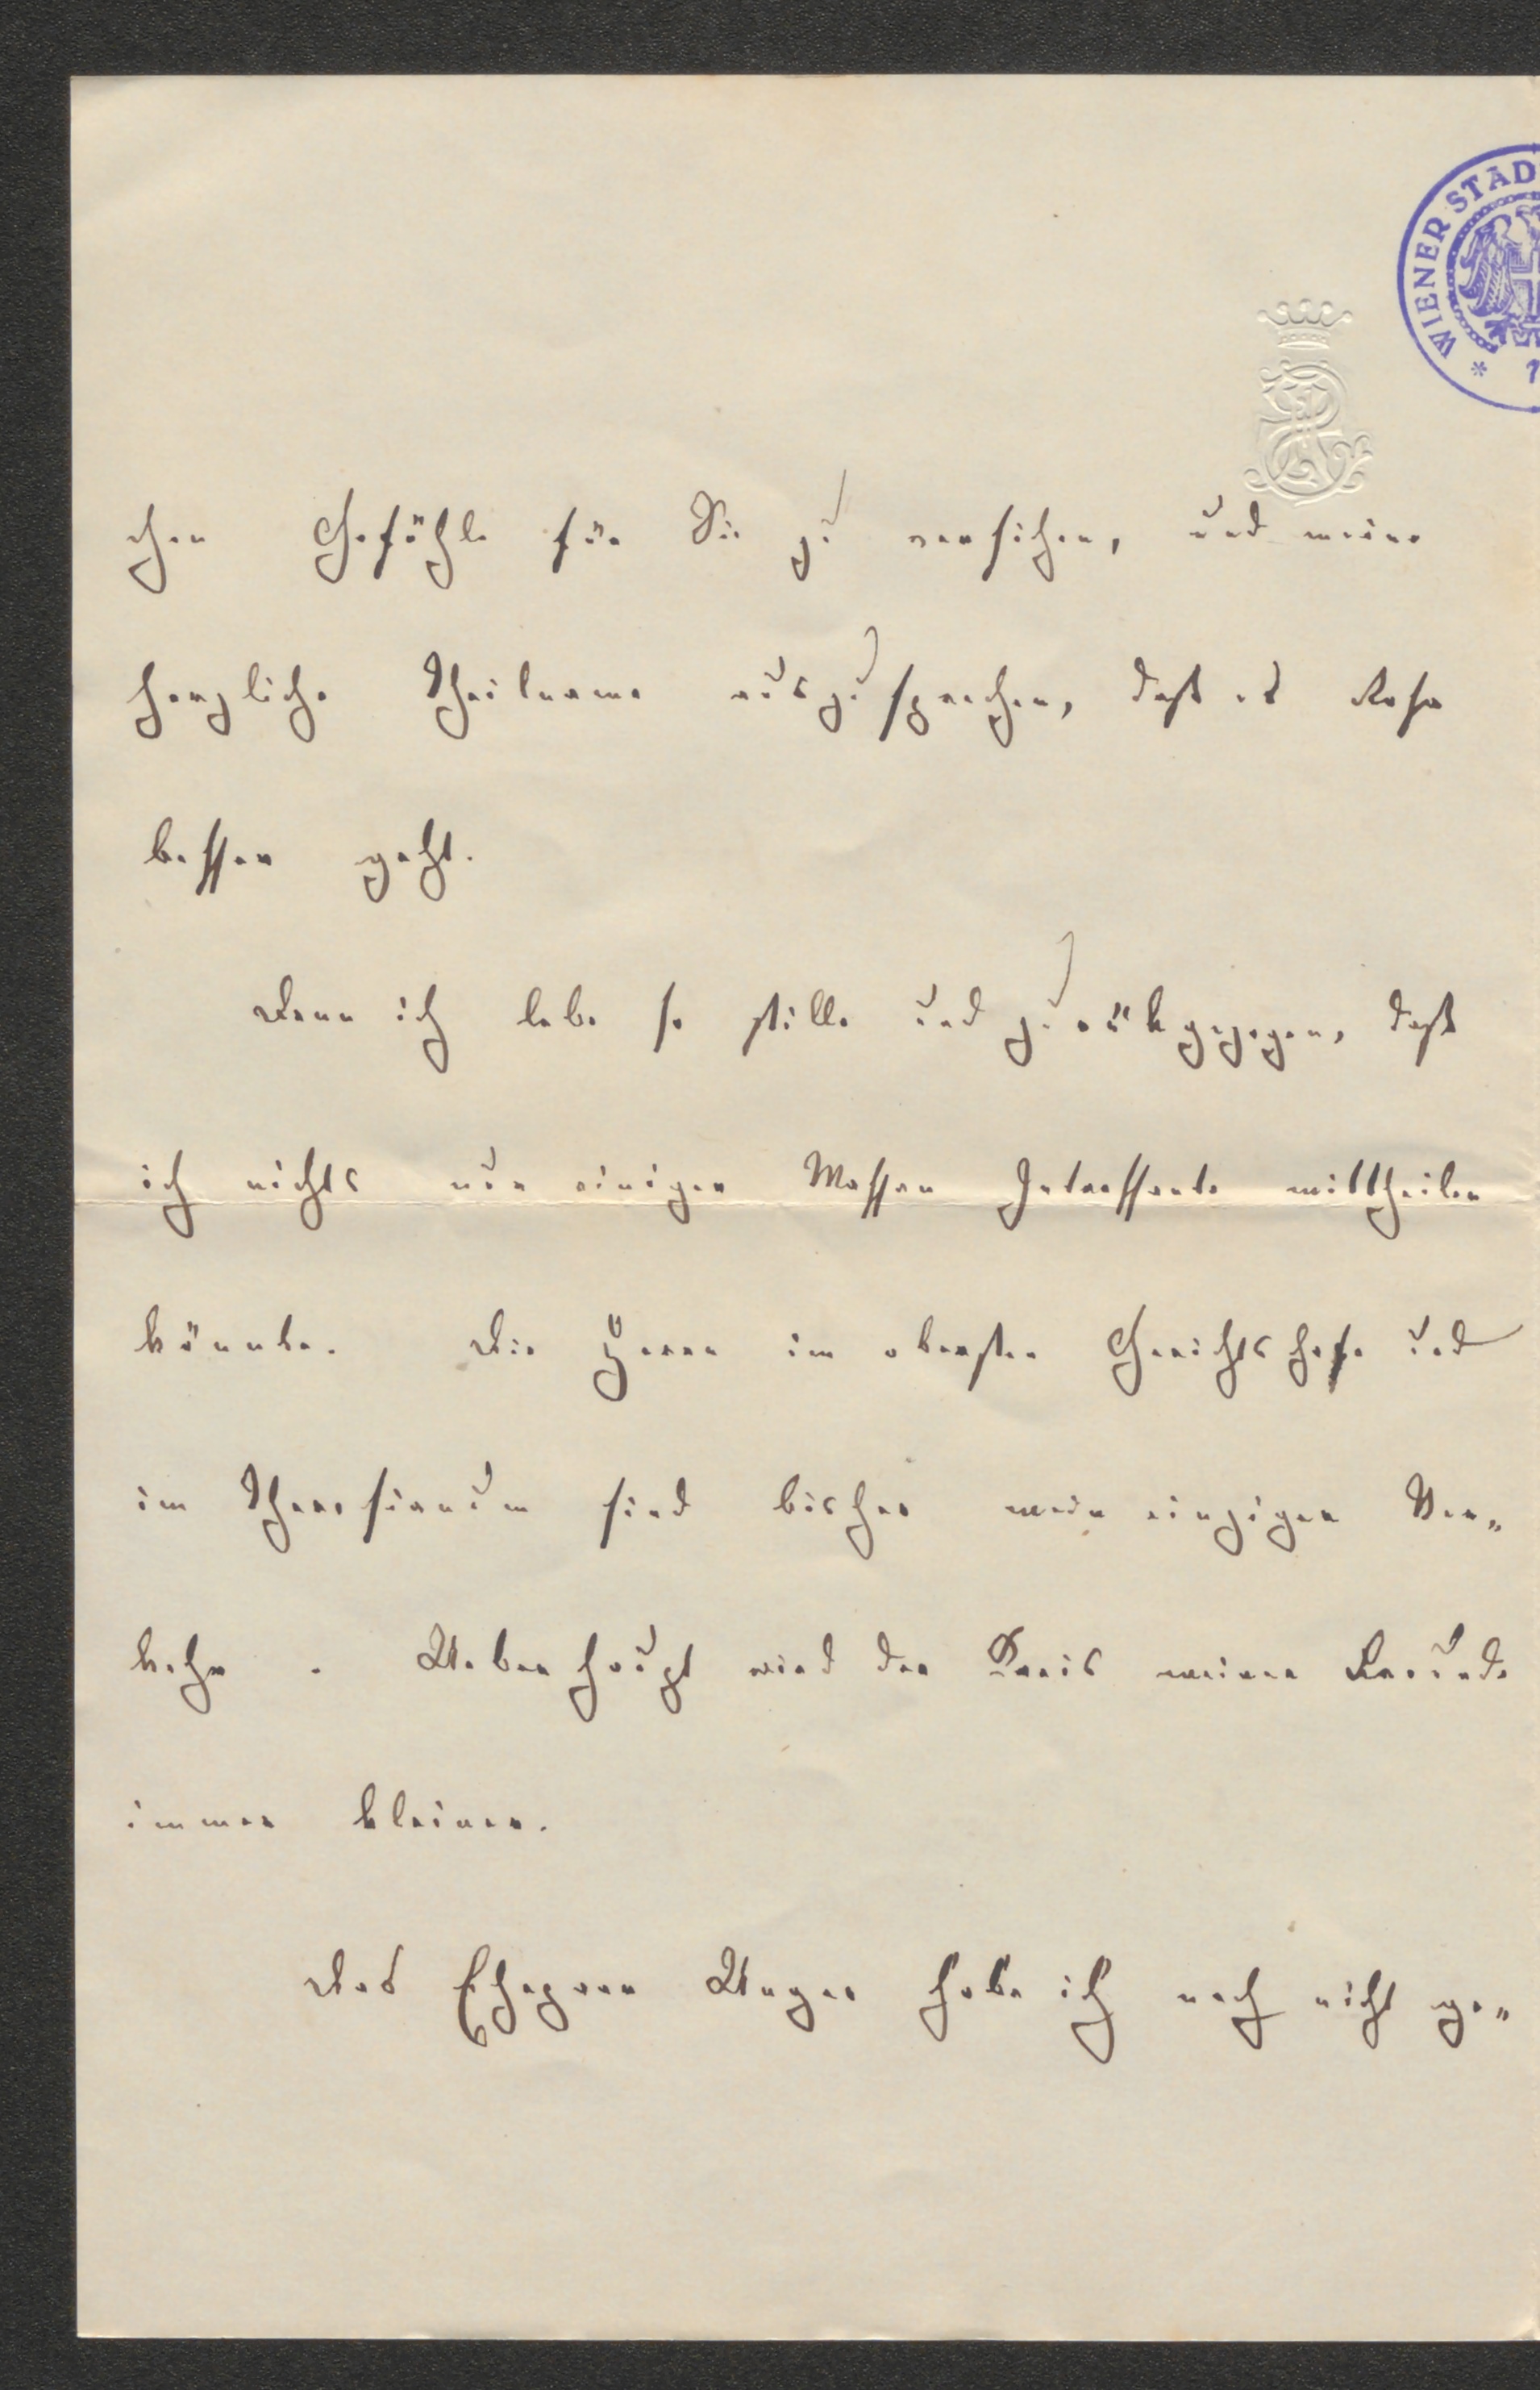 WIENER STAD
* 1
chen Gefühle für Sie zu versichen, und meine
herzliche Theilname auszusprechen, daß es Rosa
besser geht.
Denn ich lebe so stille und zurükgezogen, daß
ich nichts nur einiger Massen Interessante mittheilen
könnte. Die Herrn im obersten Gerichtshofe und
im Theresianum sind bisher mein einziger Ver„
kehr. Ueberhaupt wird der Kreis meiner Freunde
immer kleiner.
Das Ehepaar Unger habe ich noch nicht ge„